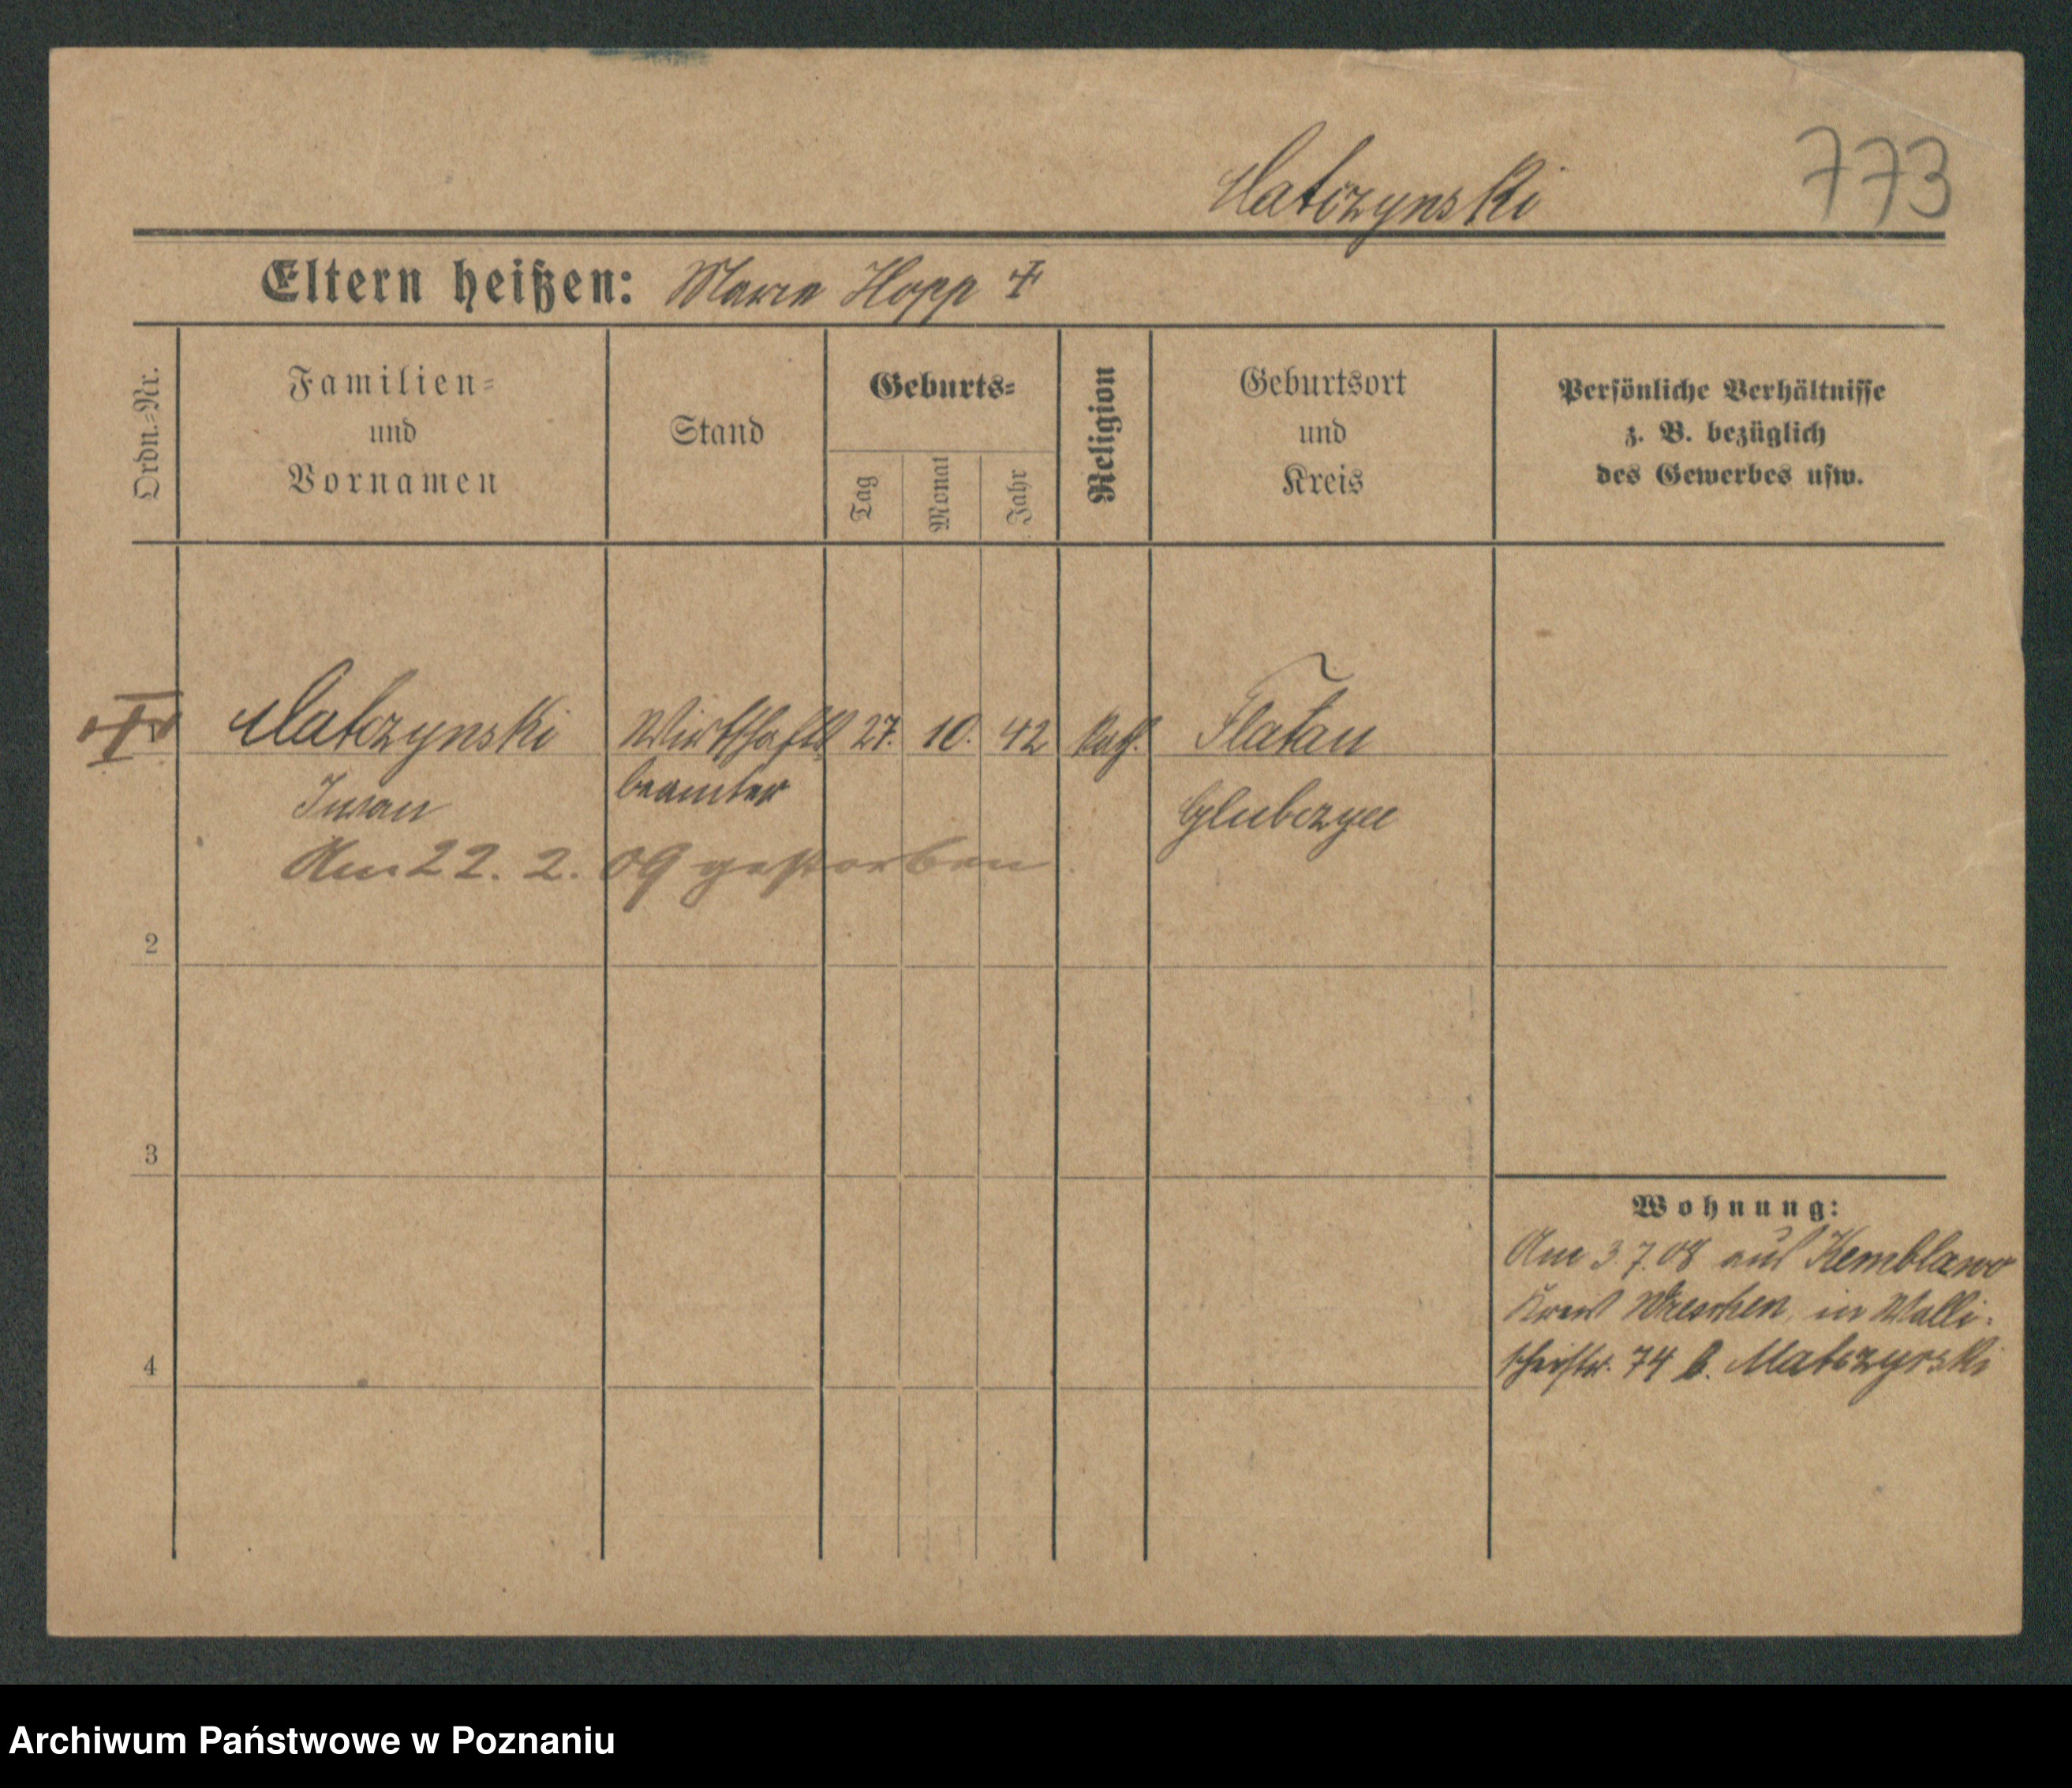 773
Matczynski
Eltern heißen: Marie Hopp +
Ordn.-Nr.
Familien-
und
Vornamen
Stand
Geburts-
Tag
Monat
Jahr
Religion
Geburtsort
und
Kreis
Persönliche Verhältnisse
z. B. bezüglich
des Gewerbes usw.
Matczynski Wirtschafts 27. 10. 42 kath. Flatau
Iwan beamter Glubczyn
Am 22. 2. 09 gestorben
2
3
4
Wohnung:
Am 3.7.08 aus Kemblawo
Kreis Wreschen, in Walli-
scheistr. 74 b. Matczynski
Archiwum Państwowe w Poznaniu